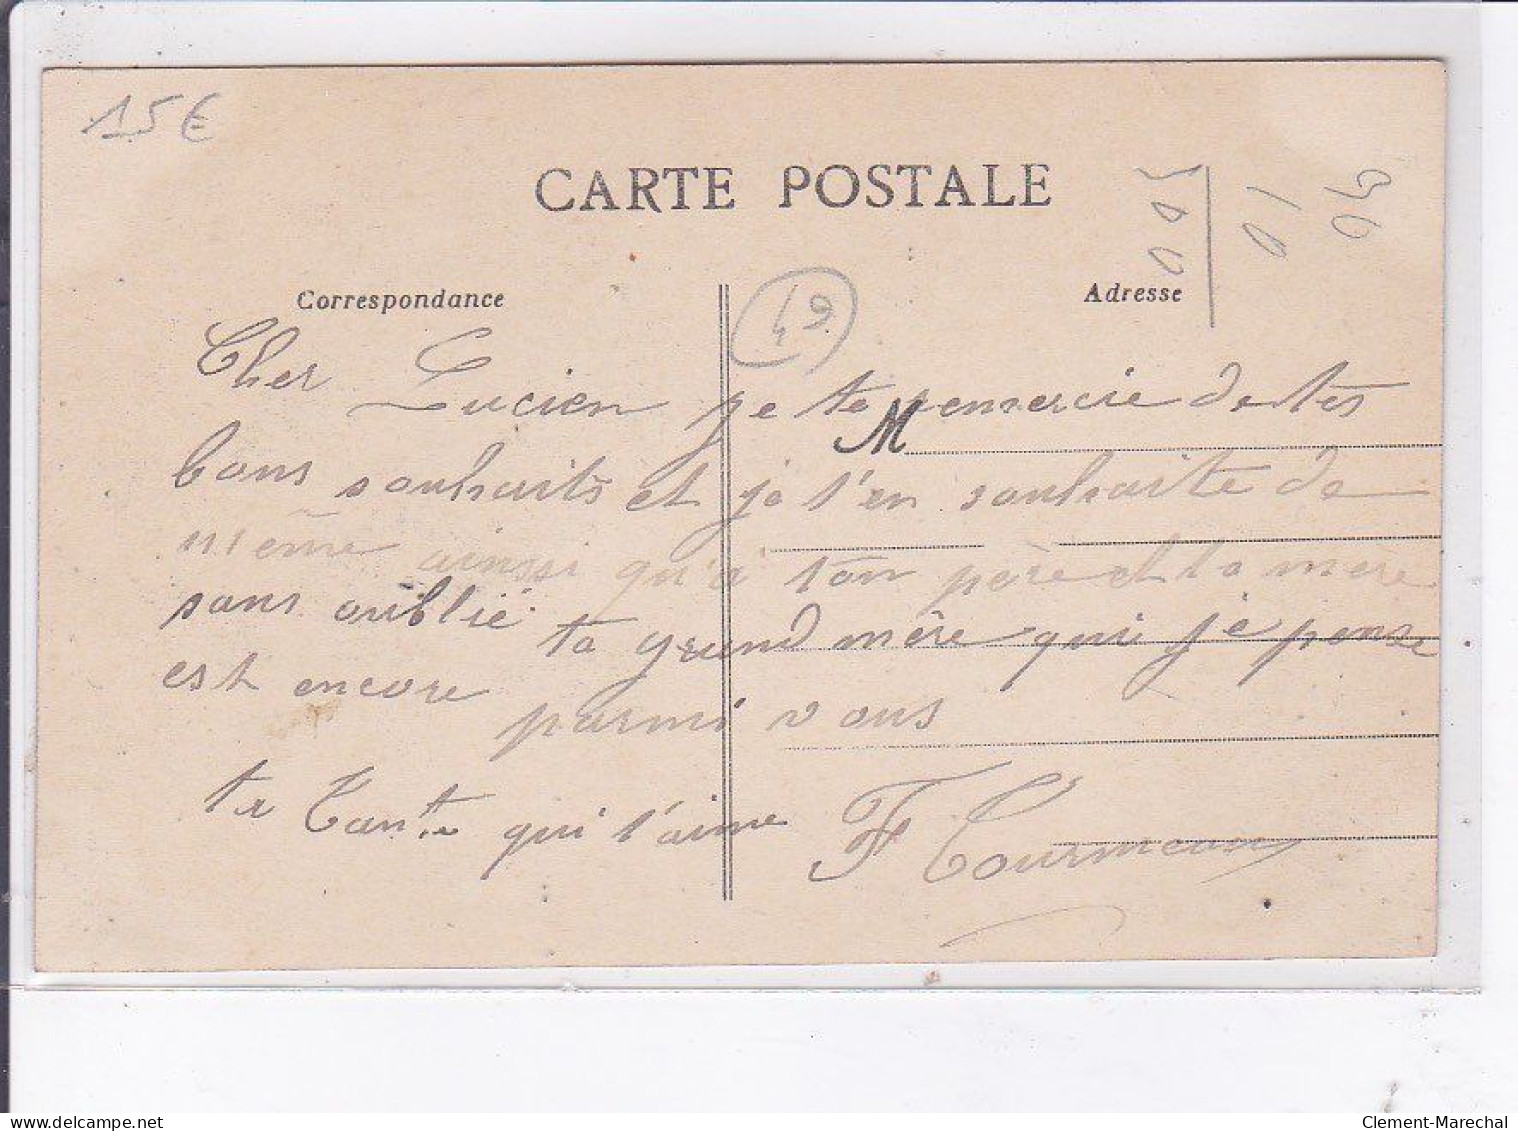 15€
CARTE POSTALE
90
10
100
Correspondance
49
Adresse
Cher Lucien je te remercie de tes
M
bons souhaits et je t'en souhaite de
même ainsi qu'a ton père et ta mère
sans oublié ta grand mère qui je pense
est encore parmi vous
ta Tante qui t'aime F
delcampe.net
Clement-Marechal